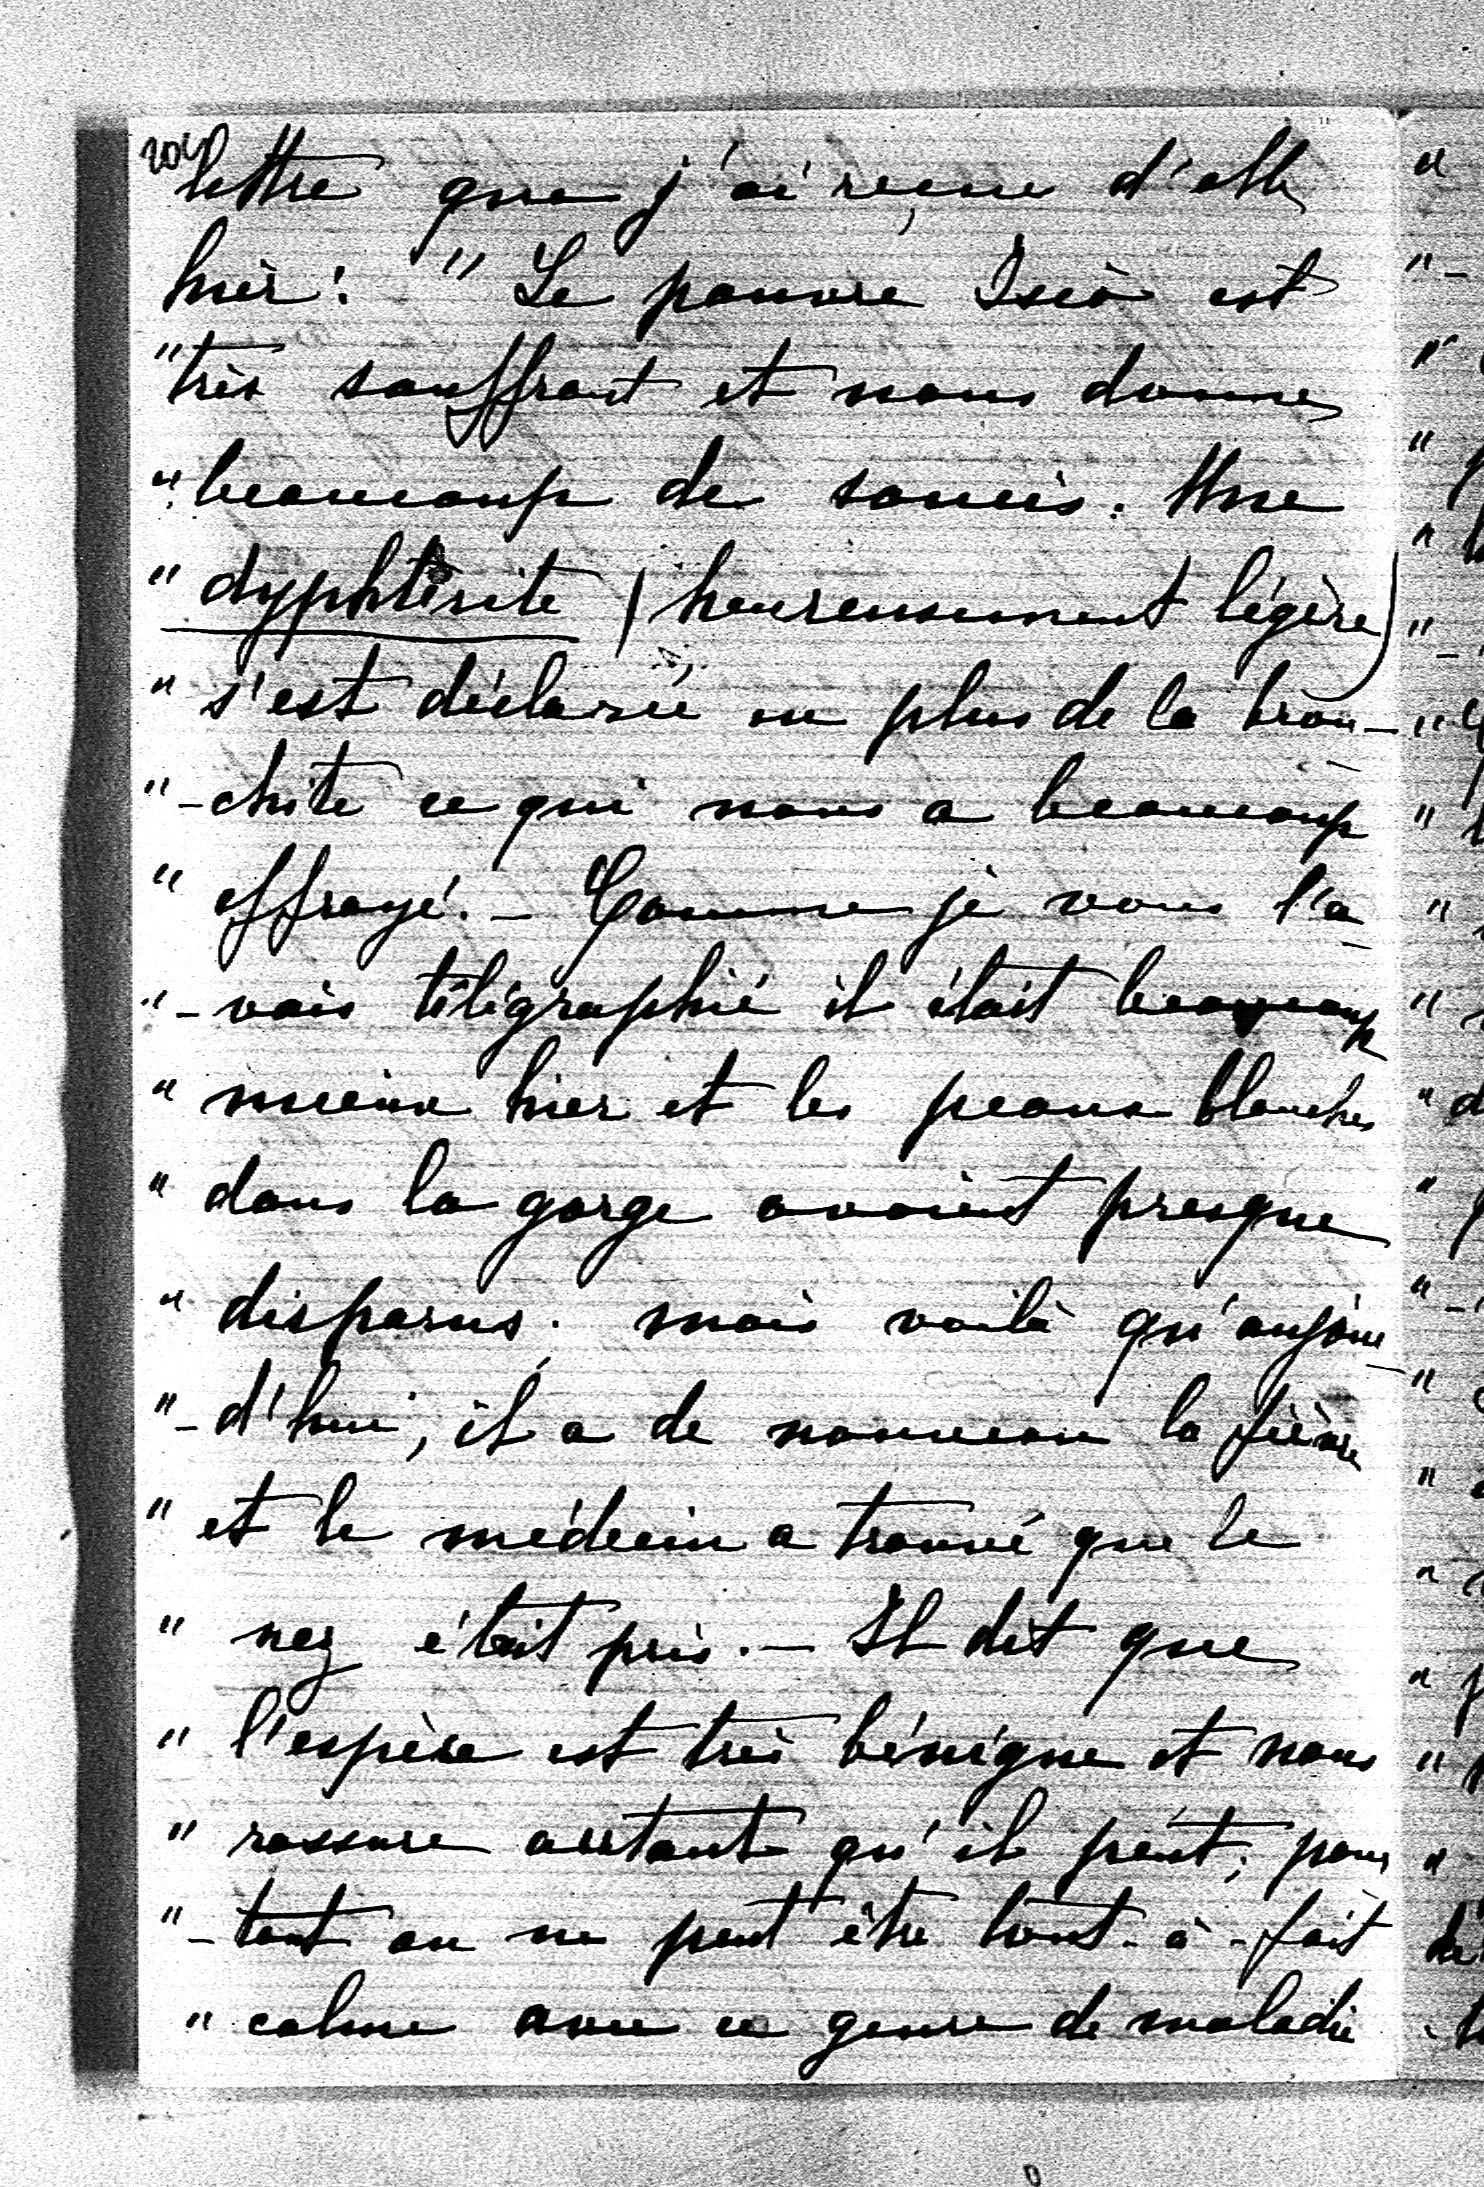 204
lettre que j'ai reçue d'elle
hier: " Le pauvre Isiò est
" très souffrant et nous donne
" beaucoup de soucis. Une
" dyphtérite (heureusement légère)
" s'est déclarée en plus de la bron-
" -chite ce qui nous a beaucoup
" effrayé. - Comme je vous l'a
" -vais télégraphié il était beaucoup
" mieux hier et les peaux blanches
" dans la gorge avaient presque
" disparus. mais voilà qu'aujour
" -d'hui, il a de nouveau la fièvre
" et le médecin a trouvé que le
" nez était pris. - Il dit que
" l'espèce est très bénigne et nous
" rassure autant qu'il peut; pour
" -tant on ne peut être tout-à-fait
" calme avec ce genre de maladie